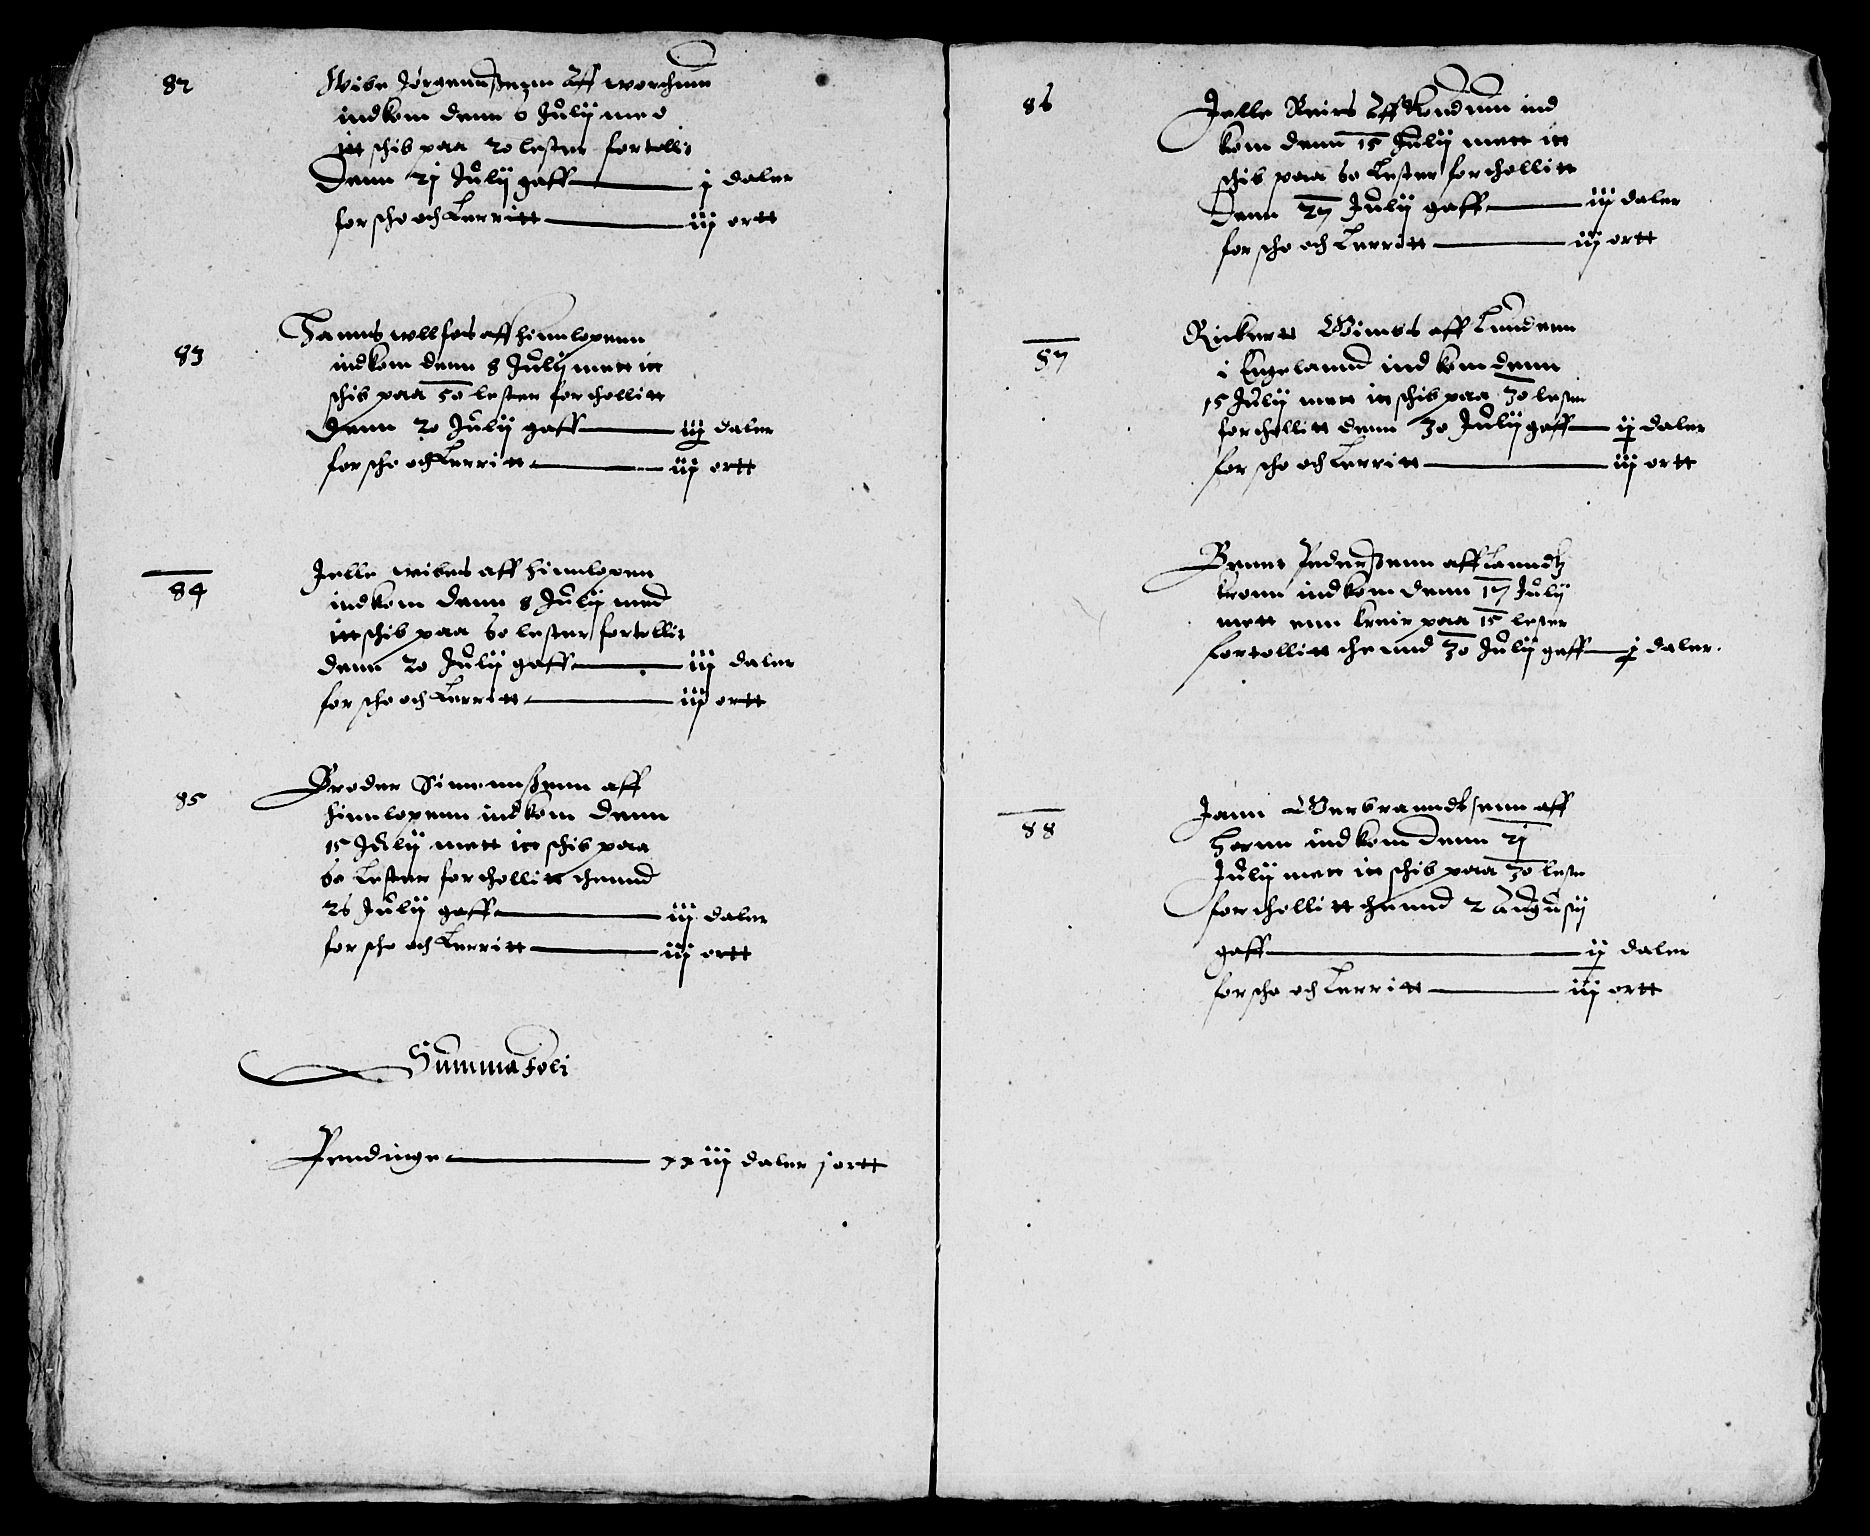 82
Wibe Jørgennßenn Aff worchum
indkom denn 6 Julij med
itt schib paa 20 lester fortollit
Denn 21 Julij gaff — j daler
for scho och Lerritt — iij ortt
83
Hanns wllfes aff hinnlopenn
indkom denn 8 Julij mett itt
schib paa 50 lester forthollitt
Denn 20 Julij gaff — iij daler
for scho och Lerritt — iij ortt
84
Jelle wibes aff hinnlopen
indkom denn 8 Julij med
itt schib paa 60 lester fortollit
denn 20 Julij gaff — iij daler
for scho och Lerritt — iij ortt
85
Broder Simennßenn aff
hinnlopenn indkom denn
15 Julij mett itt schib paa
60 Lester forthollitt thennd
26 Julij gaff — iij daler
for scho och Lerritt — iij ortt
Summa foli
Pendinge — xxiij daler j ortt
86
Jelle Reins Aff Kondum ind
kom denn 15 Julij mett itt
schib paa 60 Lester forthollitt
Denn 27 Julij gaff — iij daler
for scho och Lerritt — iij ortt
87
Rickertt Wimes aff Lundenn
i Engelannd indkom denn
15 Julij mett itt schib paa 30 lester
forthollitt denn 30 Julij gaff — ij daler
for scho och Lerritt — iij ortt
Bennt Pederßenn aff Lanndtz
kronn indkom denn 17 Julij
mett enn kreir paa 15 lester
fortollitt thennd 30 Julij gaff — j daler.
88
Jann Werbranndtsenn aff
Hornn indkom denn 21
Julij mett itt schib paa 30 lester
forthollitt thennd 2 Augusij
gaff — ij daler
for scho och Lerritt — iij ortt